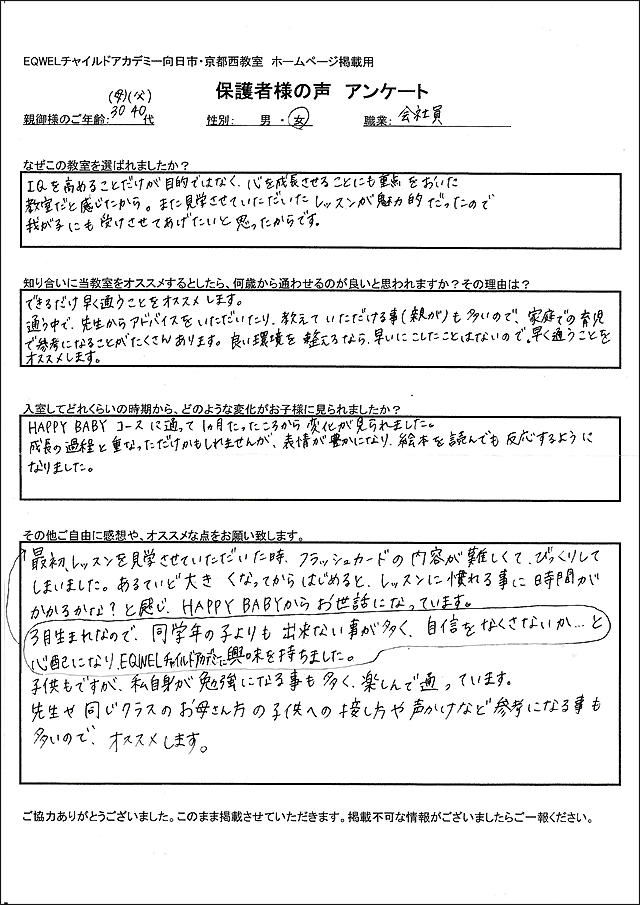 EQWELチャイルドアカデミー向日市・京都西教室 ホームページ掲載用
保護者様の声 アンケート
(母)(父)
親御様のご年齢: 30 40 代 性別: 男 ・ 女 職業: 会社員
なぜこの教室を選ばれましたか？
IQを高めることだけが目的ではなく、心を成長させることにも重点をおいた
教室だと感じたから。また見学させていただいたレッスンが魅力的だったので
我が子にも受けさせてあげたいと思ったからです。
知り合いに当教室をオススメするとしたら、何歳から通わせるのが良いと思われますか？その理由は？
できるだけ早く通うことをオススメします。
通う中で、先生からアドバイスをいただいたり、教えていただける事(親が)も多いので、家庭での育児
で参考になることがたくさんあります。良い環境を整えるなら、早いにこしたことはないので、早く通うことを
オススメします。
入室してどれくらいの時期から、どのような変化がお子様に見られましたか？
HAPPY BABYコースに通って1ヵ月たったころから変化が見られました。
成長の過程と重なっただけかもしれませんが、表情が豊かになり、絵本を読んでも反応するように
なりました。
その他ご自由に感想や、オススメな点をお願い致します。
最初、レッスンを見学させていただいた時、フラッシュカードの内容が難しくて、びっくりして
しまいました。あるていど大きくなってからはじめると、レッスンに慣れる事に時間が
かかるかな？と感じ、HAPPY BABYからお世話になっています。
3月生まれなので、同学年の子よりも出来ない事が多く、自信をなくさないか…と
心配になり、EQWELチャイルドアカデミーに興味を持ちました。
子供もですが、私自身が勉強になる事も多く、楽しんで通っています。
先生や同じクラスのお母さん方の子供への接し方や声かけなど参考になる事も
多いので、オススメします。
ご協力ありがとうございました。このまま掲載させていただきます。掲載不可な情報がございましたらご一報ください。